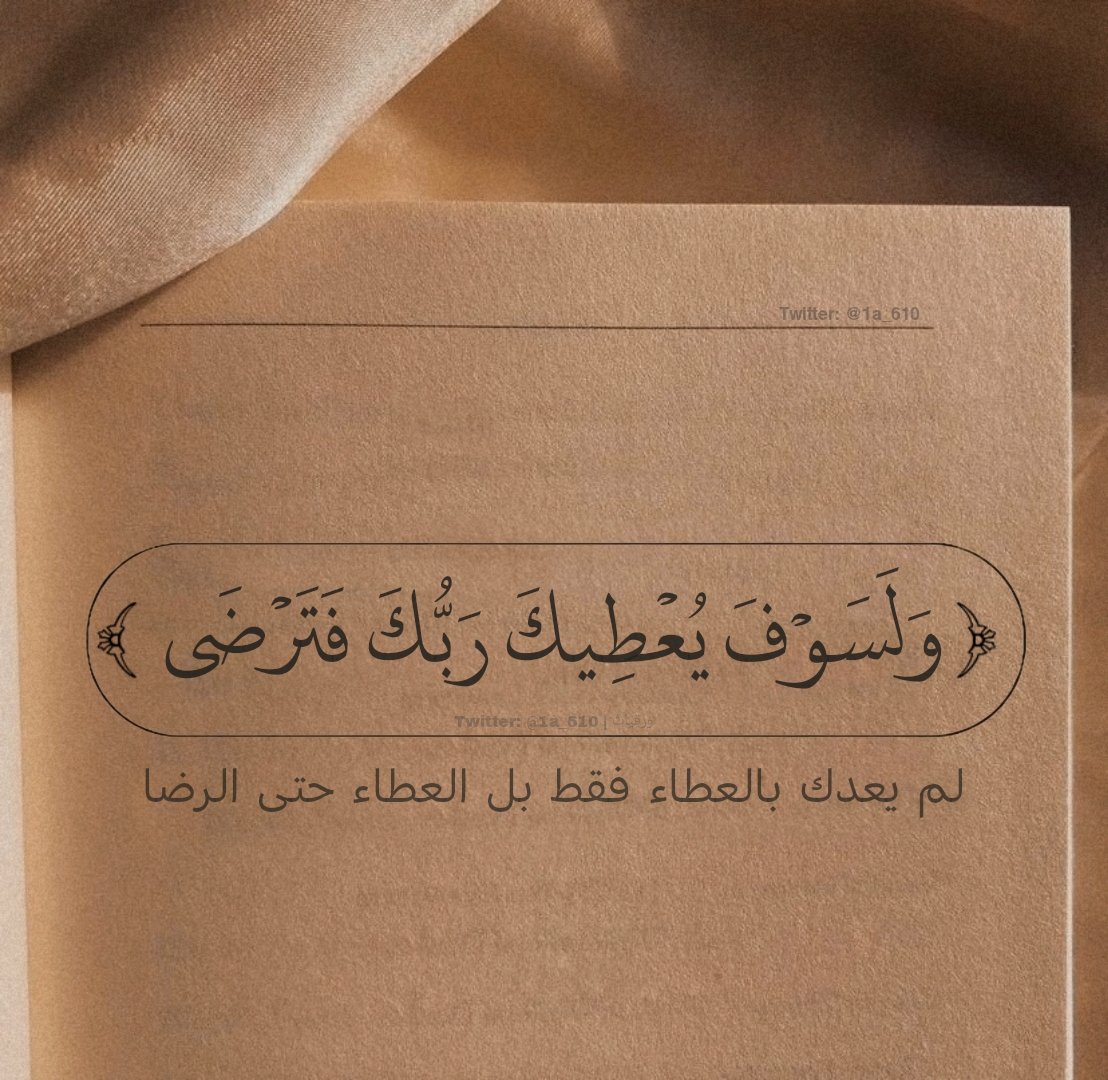 Twitter: @1a_610
﴿ وَلَسَوۡفَ يُعۡطِيكَ رَبُّكَ فَتَرۡضَى ﴾
Twitter: @1a_610 | ورقيات
لم يعدك بالعطاء فقط بل العطاء حتى الرضا